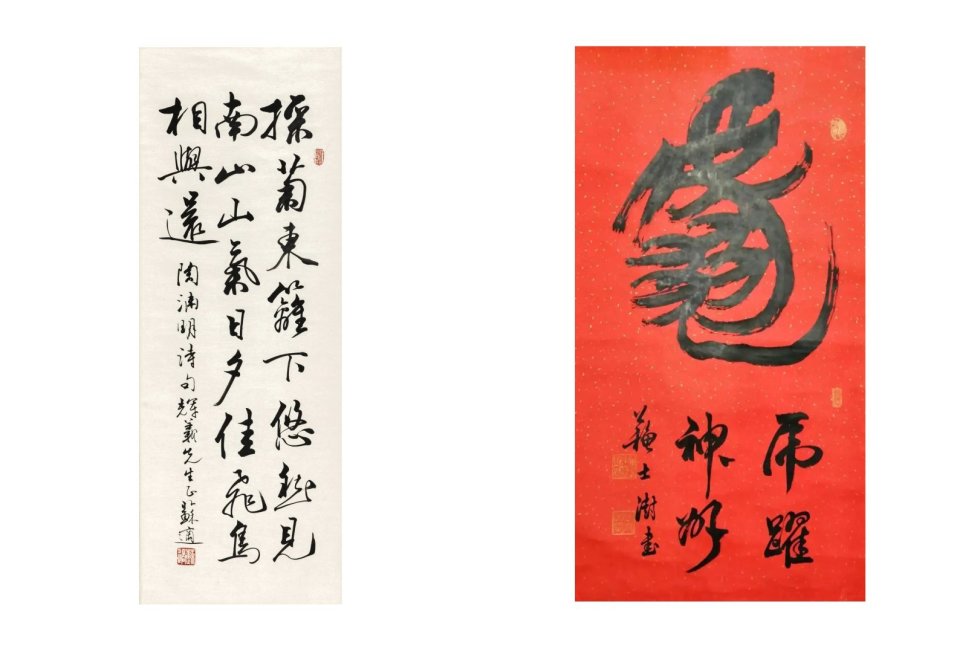 採菊東籬下悠然見
南山山氣日夕佳飛鳥
相與還
陶淵明詩句輝義先生正蘇適
虎躍
神州
蘇士澍書